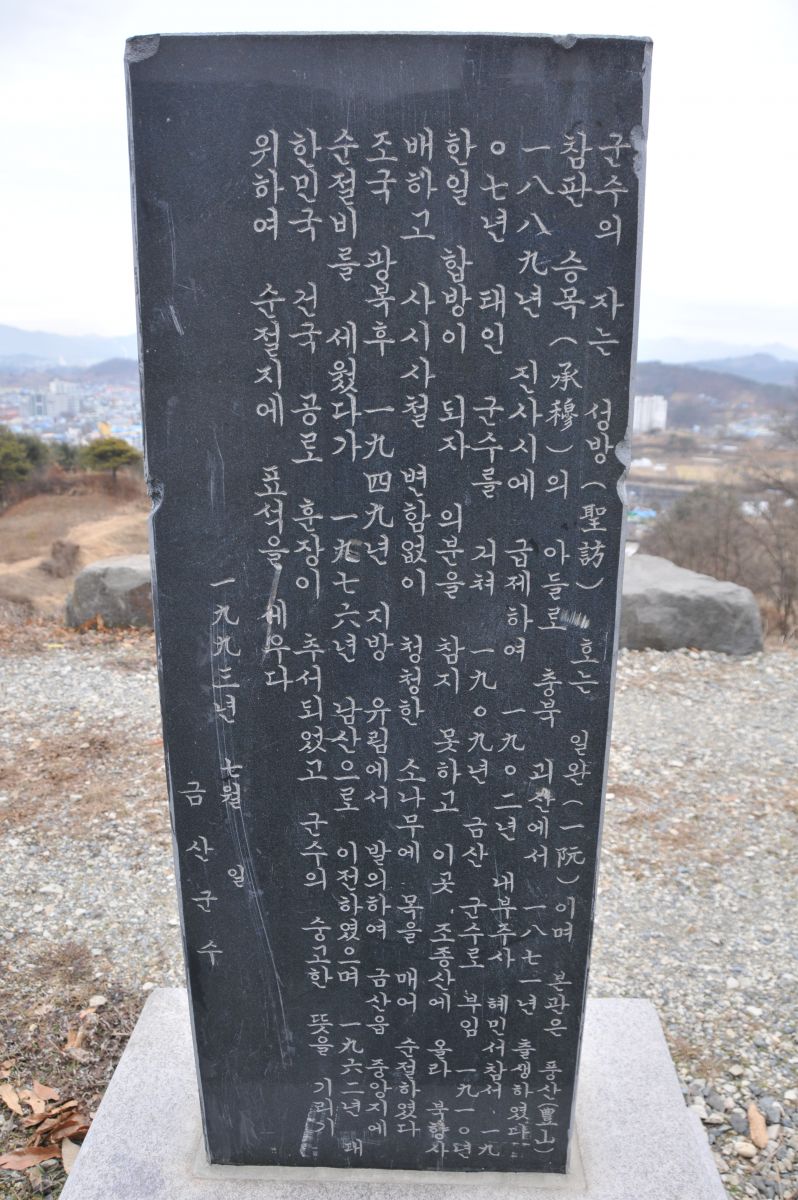 군수의 자는 성방(聖訪) 호는 일완(一阮)이며 본관은 풍산(豊山)
참판 승목(承穆)의 아들로 충북 괴산에서 一八七一년 출생하였다
一八八九년 진사시에 급제하여 一九○二년 내부주사 혜민서참서 一九
○七년 태인 군수를 거쳐 一九○九년 금산 군수로 부임 一九一○년
한일 합방이 되자 의분을 참지 못하고 이곳 조종산에 올라 북향사
배하고 사시사철 변함없이 청청한 소나무에 목을 매어 순절하였다
조국 광복후 一九四九년 지방 유림에서 발의하여 금산읍 중앙지에
순절비를 세웠다가 一九七六년 남산으로 이전하였으며 一九六二년 대
한민국 건국 공로 훈장이 추서되었고 군수의 숭고한 뜻을 기리기
위하여 순절지에 표석을 세우다
一九九三년 七월 일
금산군수